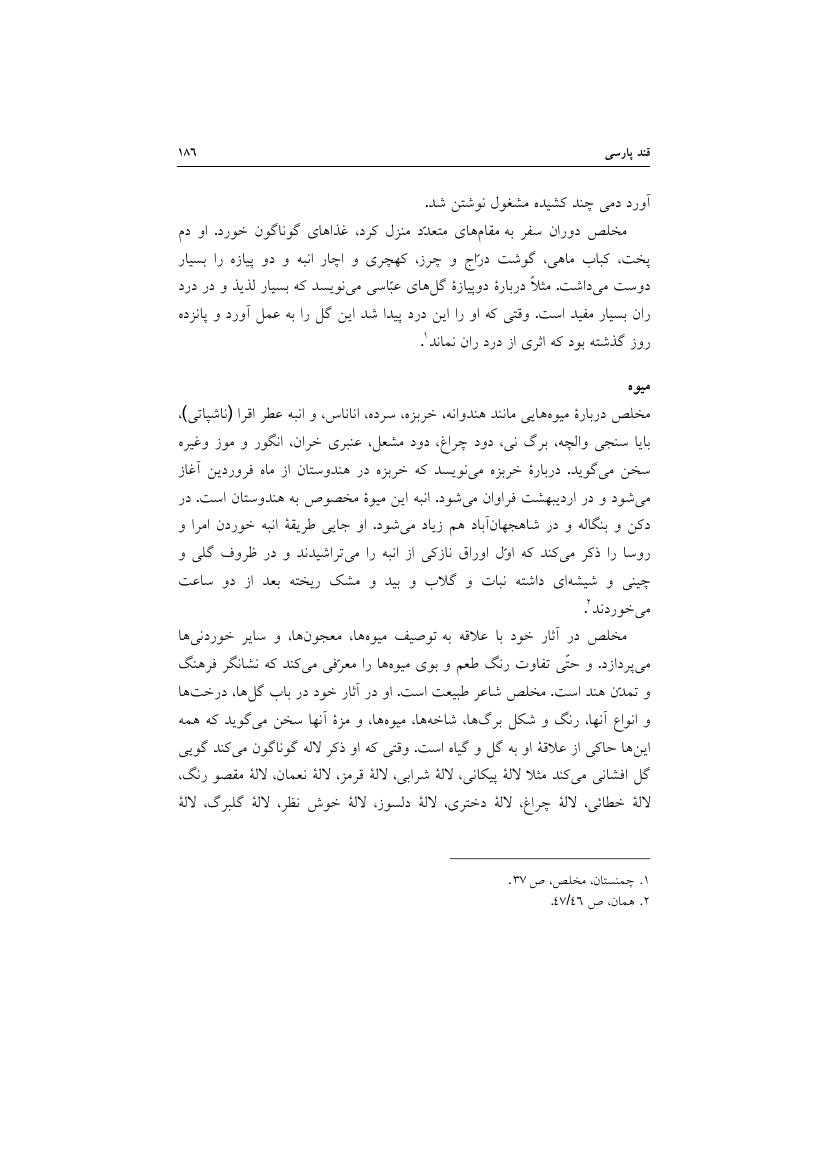 قند پارسی ۱۸٦
آورد دمی چند کشیده مشغول نوشتن شد.
مخلص دوران سفر به مقام‌های متعدّد منزل کرد، غذاهای گوناگون خورد. او دم
پخت، کباب ماهی، گوشت درّاج و چرز، کهچری و اچار انبه و دو پیازه را بسیار
دوست می‌داشت. مثلاً دربارۀ دوپیازۀ گل‌های عبّاسی می‌نویسد که بسیار لذیذ و در درد
ران بسیار مفید است. وقتی که او را این درد پیدا شد این گل را به عمل آورد و پانزده
روز گذشته بود که اثری از درد ران نماند۱.
میوه
مخلص دربارۀ میوه‌هایی مانند هندوانه، خربزه، سرده، اناناس، و انبه عطر اقرا (ناشپاتی)،
بایا سنجی والچه، برگ نی، دود چراغ، دود مشعل، عنبری خران، انگور و موز وغیره
سخن می‌گوید. دربارۀ خربزه می‌نویسد که خربزه در هندوستان از ماه فروردین آغاز
می‌شود و در اردیبهشت فراوان می‌شود. انبه این میوۀ مخصوص به هندوستان است. در
دکن و بنگاله و در شاهجهان‌آباد هم زیاد می‌شود. او جایی طریقۀ انبه خوردن امرا و
روسا را ذکر می‌کند که اوّل اوراق نازکی از انبه را می‌تراشیدند و در ظروف گلی و
چینی و شیشه‌ای داشته نبات و گلاب و بید و مشک ریخته بعد از دو ساعت
می‌خوردند۲.
مخلص در آثار خود با علاقه به توصیف میوه‌ها، معجون‌ها، و سایر خوردنی‌ها
می‌پردازد. و حتّی تفاوت رنگ طعم و بوی میوه‌ها را معرّفی می‌کند که نشانگر فرهنگ
و تمدّن هند است. مخلص شاعر طبیعت است. او در آثار خود در باب گل‌ها، درخت‌ها
و انواع آنها، رنگ و شکل برگ‌ها، شاخه‌ها، میوه‌ها، و مزۀ آنها سخن می‌گوید که همه
این‌ها حاکی از علاقۀ او به گل و گیاه است. وقتی که او ذکر لاله گوناگون می‌کند گویی
گل افشانی می‌کند مثلا لالۀ پیکانی، لالۀ شرابی، لالۀ قرمز، لالۀ نعمان، لالۀ مقصو رنگ،
لالۀ خطائی، لالۀ چراغ، لالۀ دختری، لالۀ دلسوز، لالۀ خوش نظر، لالۀ گلبرگ، لالۀ
۱. چمنستان، مخلص، ص ۳۷.
۲. همان، ص ٤۷/٤٦.